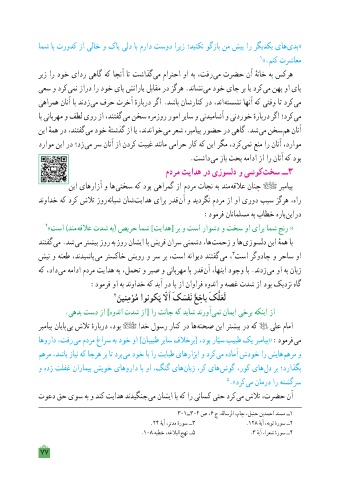 «بدی‌های یکدیگر را پیش من بازگو نکنید؛ زیرا دوست دارم با دلی پاک و خالی از کدورت با شما
معاشرت کنم.»۱
هرکس به خانهٔ آن حضرت می‌رفت، به او احترام می‌گذاشت تا آنجا که گاهی ردای خود را زیر
پای او پهن می‌کرد یا بر جای خود می‌نشاند. هرگز در مقابل یارانش پای خود را دراز نمی‌کرد و سعی
می‌کرد تا وقتی که آنها نشسته‌اند، در کنارشان باشد. اگر دربارهٔ آخرت حرف می‌زدند با آنان همراهی
می‌کرد؛ اگر دربارهٔ خوردنی و آشامیدنی و سایر امور روزمره سخن می‌گفتند، از روی لطف و مهربانی با
آنان هم‌سخن می‌شد. گاهی در حضور پیامبر، شعر می‌خواندند، یا از گذشتهٔ خود می‌گفتند، در همهٔ این
موارد، آنان را منع نمی‌کرد، مگر این که کار حرامی مانند غیبت کردن از آنان سر می‌زد؛ در این موارد
بود که آنان را از ادامه بحث باز می‌داشت.
۳ــ سخت‌کوشی و دلسوزی در هدایت مردم
پیامبر ﷺ چنان علاقه‌مند به نجات مردم از گمراهی بود که سختی‌ها و آزارهای این
راه، هرگز سبب دوری او از مردم نگردید و آن‌قدر برای هدایت‌شان شبانه‌روز تلاش کرد که خداوند
دراین‌باره خطاب به مسلمانان فرمود :
« رنج شما برای او سخت و دشوار است و بر [هدایت] شما حریص [به شدت علاقه‌مند] است»۲
با همهٔ این دلسوزی‌ها و زحمت‌ها، دشمنی سران قریش با ایشان روز به روز بیشتر می‌شد. می‌گفتند
او ساحر و جادوگر است۳. می‌گفتند دیوانه است، بر سر و رویش خاکستر می‌پاشیدند، طعنه و نیش
زبان به او می‌زدند. با وجود اینها، آن‌قدر با مهربانی و صبر و تحمل، به هدایت مردم ادامه می‌داد، که
گاه نزدیک بود از شدت غصه و اندوه فراوان از پا در آید که خداوند به او فرمود :
لَعَلَّكَ باخِعٌ نَفسَكَ اَلّا يَكونوا مُؤمِنينَ۴
از اینکه برخی ایمان نمی‌آورند شاید که جانت را [از شدت اندوه] از دست بدهی.
امام علی ﷷ که در بیشتر این صحنه‌ها در کنار رسول خدا ﷺ بود، دربارهٔ تلاش بی‌پایان پیامبر
می‌فرمود : «پیامبر یک طبیب سیّار بود، [برخلاف سایر طبیبان] او خود به سراغ مردم می‌رفت، داروها
و مرهم‌هایش را خودش آماده می‌کرد و ابزارهای طبابت را با خود می‌برد تا بر هرجا که نیاز باشد، مرهم
بگذارد؛ بر دل‌های کور، گوش‌های کر، زبان‌های گنگ. او با داروهای خویش بیماران غفلت زده و
سرگشته را درمان می‌کرد».۵
آن حضرت، تلاش می‌کرد حتی کسانی را که با ایشان می‌جنگیدند هدایت کند و به سوی حق دعوت
۱ــ مسند احمدبن حنبل، چاپ الرساله، ج ۶، ص ۳۰۲ــ۳۰۱
۲ــ سورهٔ توبه، آیهٔ ۱۲۸.
۳ــ سورهٔ مدثر، آیهٔ ۲۴.
۴ــ سورهٔ شعرا، آیهٔ ۳.
۵ــ نهج‌البلاغه، خطبه ۱۰۸.
۷۷